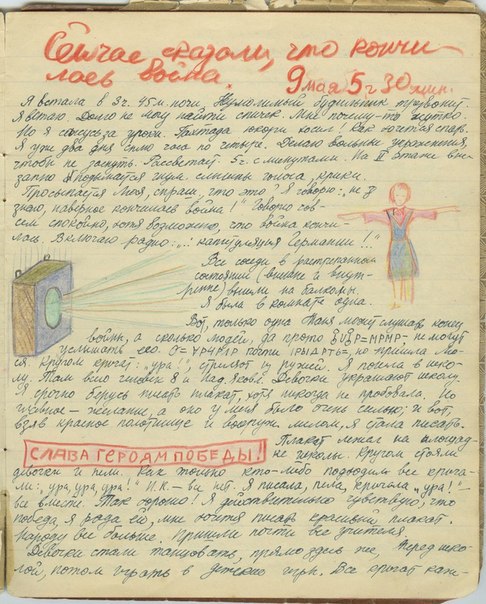 Сейчас сказали, что кончи-
лась война. 9 мая 5 ч 30 мин.
Я встала в 3 ч. 45 м. ночи. Неумолимый будильник трезвонит.
Я встаю. Долго не могу найти спичек. Мне почему-то жутко.
Но я сажусь за уроки. Пахтада юкори косил! Как хочется спать.
Я уже два дня сплю часа по четыре. Делаю вольные упражнения,
чтобы не заснуть. Рассветает. 5 ч. с минутами. На II этаже вне-
запно поднимается шум. слышны голоса, крики.
Просыпается Люя, спраш, что это? Я говорю: „не
знаю, наверное кончилась война!" Говорю сов-
сем спокойно, хотя возможно, что война кончи-
лась. Включаю радио: „... капитуляция Германии!.."
Все соседи в растрепанном
состоянии (внешне и внут-
ренне) вышли на балкон.
Я была в комнате одна.
Вот, только одна Таня может слушать конец
войны, а сколько людей, да просто не могут
услышать его. почти но пришла Лю-
ся. Кругом кричат: „ура!", стреляют из ружей. Я пошла в шко-
лу. Там было человек 8 и Над. Яковл. Девочки украшают школу.
Я срочно берусь писать плакат, хотя никогда не пробовала. Но
главное - желание, а оно у меня было очень сильно; и вот,
взяв красное полотнище и разведен. мелом, я стала писать.
СЛАВА ГЕРОЯМ ПОБЕДЫ! Плакат лежал на площад-
ке школы. Кругом стояли
девочки и пели. Как только кто-либо подходил все крича-
ли: „ура, ура, ура!" И.К. - вы нет. Я писала, пела, кричала „ура!" -
все вместе. Так хорошо! Я действительно чувствую, что
победа, я рада ей, мне хочется писать красивый плакат.
Народу все больше. Пришли почти все учителя.
Девочки стали танцевать, прямо здесь же, перед шко-
лой, потом играть в детские игры. Все кричат